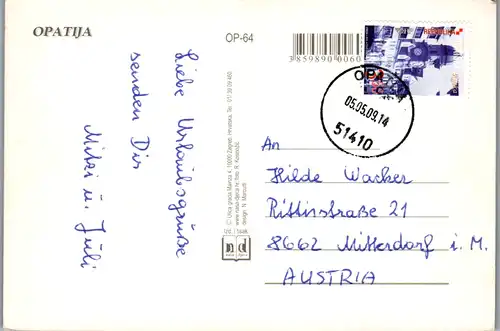 OPATIJA
Liebe Urlaubsgrüße
senden Dir
Mitzi u. Juli
OP-64
3859890 0060
nd
REPUBLIKA
OPA
05.05.09.14
51410
An
Hilde Wacker
Rittisstraße 21
8662 Mitterdorf i. M.
AUSTRIA